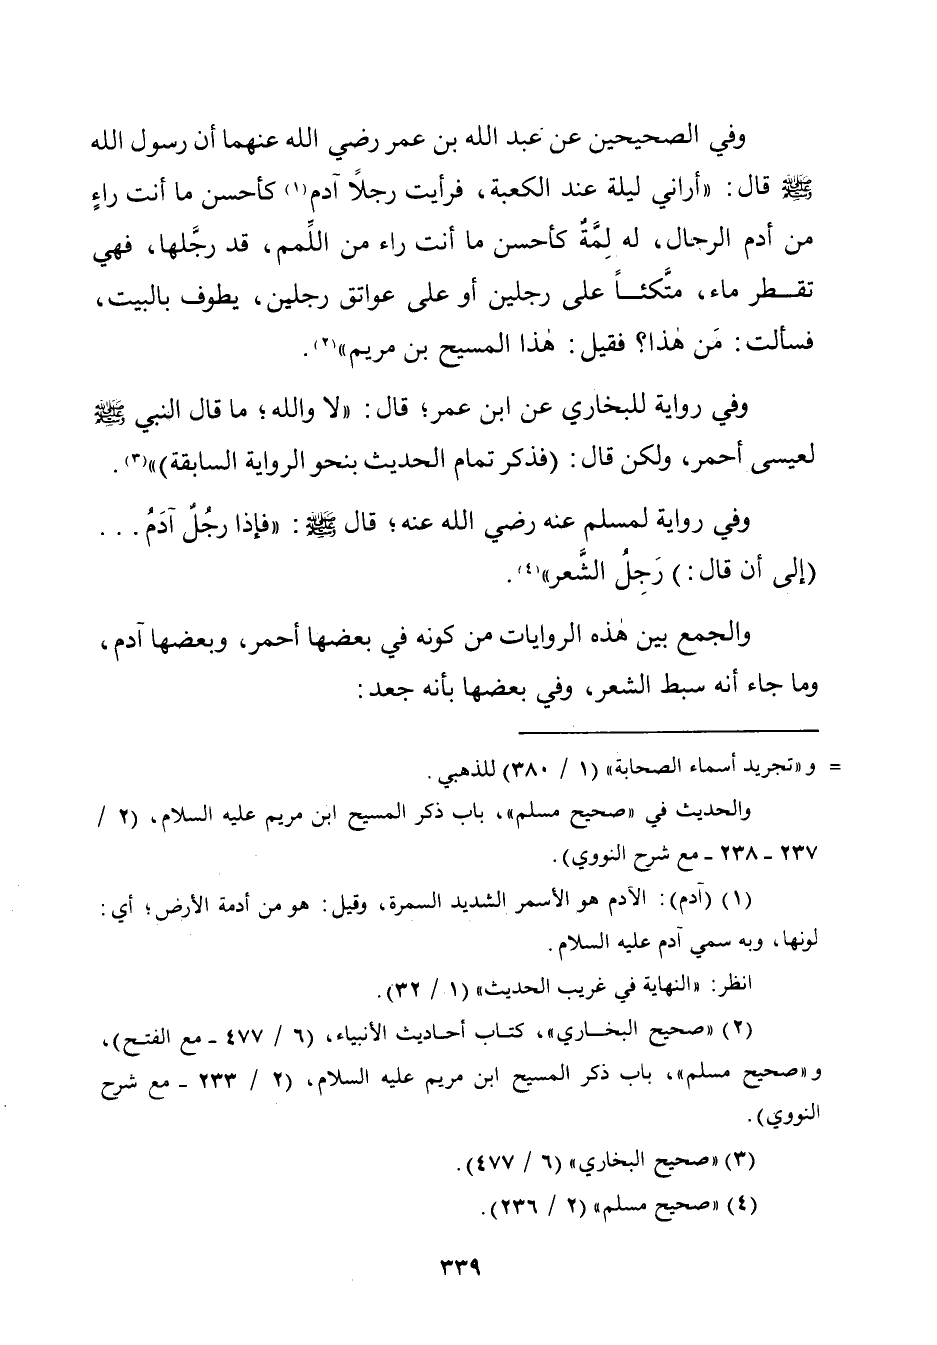 وفي الصحيحين عن عبد الله بن عمر رضي الله عنهما أن رسول الله
ﷺ قال: «أراني ليلة عند الكعبة، فرأيت رجلاً آدم(١) كأحسن ما أنت راءٍ
من أدم الرجال، له لِمَّةٌ كأحسن ما أنت راء من اللِّمم، قد رجَّلها، فهي
تقـــطر ماء، متَّكئــاً على رجلين أو على عواتق رجلين، يطوف بالبيت،
فسألت: مَن هٰذا؟ فقيل: هٰذا المسيح بن مريم»(٢).
وفي رواية للبخاري عن ابن عمر؛ قال: «لا والله؛ ما قال النبي ﷺ
لعيسى أحمر، ولكن قال: (فذكر تمام الحديث بنحو الرواية السابقة)»(٣).
وفي رواية لمسلم عنه رضي الله عنه؛ قال ﷺ: «فإذا رجُلٌ آدَمُ . . .
(إلى أن قال:) رَجِلُ الشَّعر»(٤).
والجمع بين هٰذه الروايات من كونه في بعضها أحمر، وبعضها آدم،
وما جاء أنه سبط الشعر، وفي بعضها بأنه جعد:
= و «تجريد أسماء الصحابة» (١ / ٣٨٠) للذهبي.
والحديث في «صحيح مسلم»، باب ذكر المسيح ابن مريم عليه السلام، (٢ /
٢٣٧ ـ ٢٣٨ ـ مع شرح النووي).
(١) (آدم): الآدم هو الأسمر الشديد السمرة، وقيل: هو من أدمة الأرض؛ أي:
لونها، وبه سمي آدم عليه السلام.
انظر: «النهاية في غريب الحديث» (١ / ٣٢).
(٢) «صحيح البخــاري»، كتـاب أحـاديث الأنبياء، (٦ / ٤٧٧ ـ مع الفتـح)،
و «صحيح مسلم»، باب ذكر المسيح ابن مريم عليه السلام، (٢ / ٢٣٣ ـ مع شرح
النووي).
(٣) «صحيح البخاري» (٦ / ٤٧٧).
(٤) «صحيح مسلم» (٢ / ٢٣٦).
٣٣٩